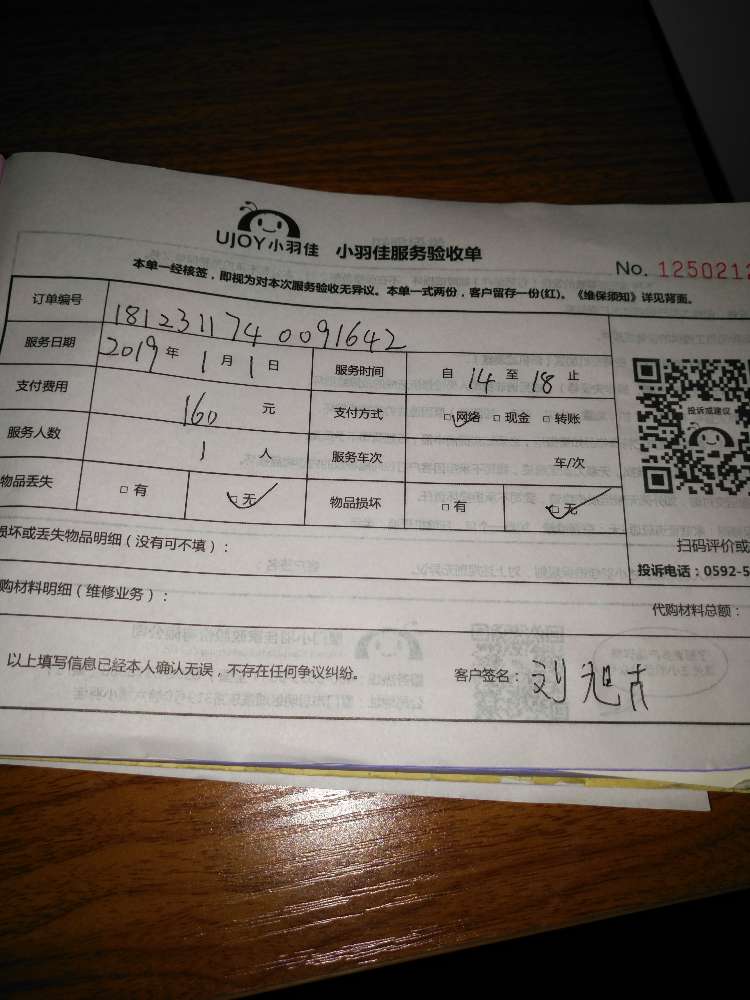 UJOY小羽佳 小羽佳服务验收单
No. 1250212
本单一经核签，即视为对本次服务验收无异议。本单一式两份，客户留存一份(红)。《维保须知》详见背面。
订单编号 181231174 0091642
服务日期 2019 年 1 月 1 日 服务时间 自 14 至 18 止
支付费用 160 元 支付方式 □网络 □现金 □转账
服务人数 1 人 服务车次 车/次
物品丢失 □有 □无 物品损坏 □有 □无
投诉或建议
扫码评价或
损坏或丢失物品明细（没有可不填）：
投诉电话：0592-5
购材料明细（维修业务）：
代购材料总额：
以上填写信息已经本人确认无误，不存在任何争议纠纷。 客户签名：刘旭